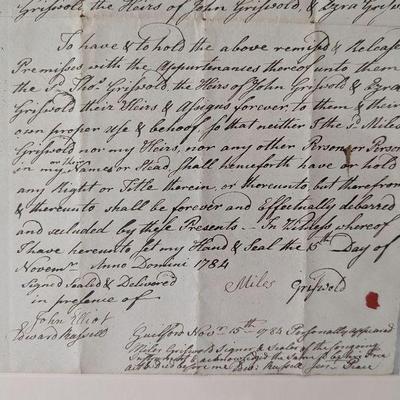 Griswold the Heirs of John Griswold, & Ezra Gris
To have & to hold the above remised & Releas
Premises with the Appurtenances thereof unto them
the sd. Thos. Griswold, the Heirs of John Griswold & Ezra
Griswold their Heirs & Assigns forever, to them & their
own proper use & behoof, so that neither I the sd. Miles
Griswold nor my Heirs, nor any other Person or Person
in my or their Name or Stead shall henceforth have or hold
any Right or Title therein, or thereunto, but therefrom
& thereunto shall be forever and Effectually debarred
and secluded by these Presents – In Witness whereof
I have hereunto set my Hand & Seal the 15th Day of
Novemr. Anno Domini 1784
Signed Sealed & Delivered
in presence of
Miles Griswold
John Elliot
Edward Russell
Guilford Novr. 15th 1784 Personally appeared
Miles Griswold Signer & Sealer of the foregoing
Instrument & acknowledged the same to be his Free
act & Deed before me Russell Peace